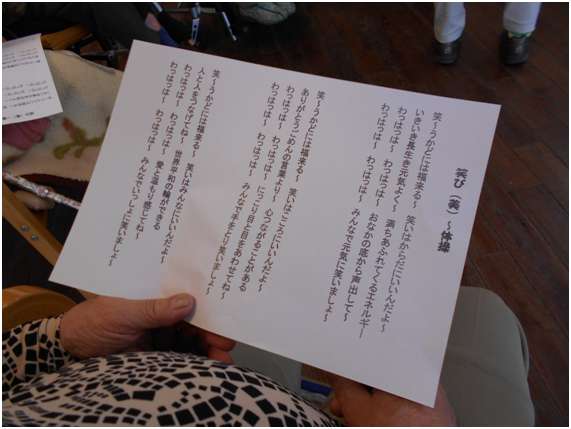 笑び(美)〜体操
笑〜うかどには福来る〜　笑いはからだにいいんだよ〜
いきいき長生き元気よく〜　満ちあふれてくるエネルギー
わっはっは〜　わっはっは〜　おなかの底から声出して〜
わっはっは〜　わっはっは〜　みんなで元気に笑いましょ〜
笑〜うかどには福来る〜　笑いはこころにいいんだよ〜
ありがとうごめんの言葉より〜　心つながることがある
わっはっは〜　わっはっは〜　にっこり目と目をあわせてね〜
わっはっは〜　わっはっは〜　みんなで手をとり笑いましょ〜
笑〜うかどには福来る〜　笑いはみんなにいいんだよ〜
人と人をつなげてね〜　世界平和の輪ができる
わっはっは〜　わっはっは〜　愛と温もり感じてね〜
わっはっは〜　わっはっは〜　みんなでいっしょに笑いましょ〜